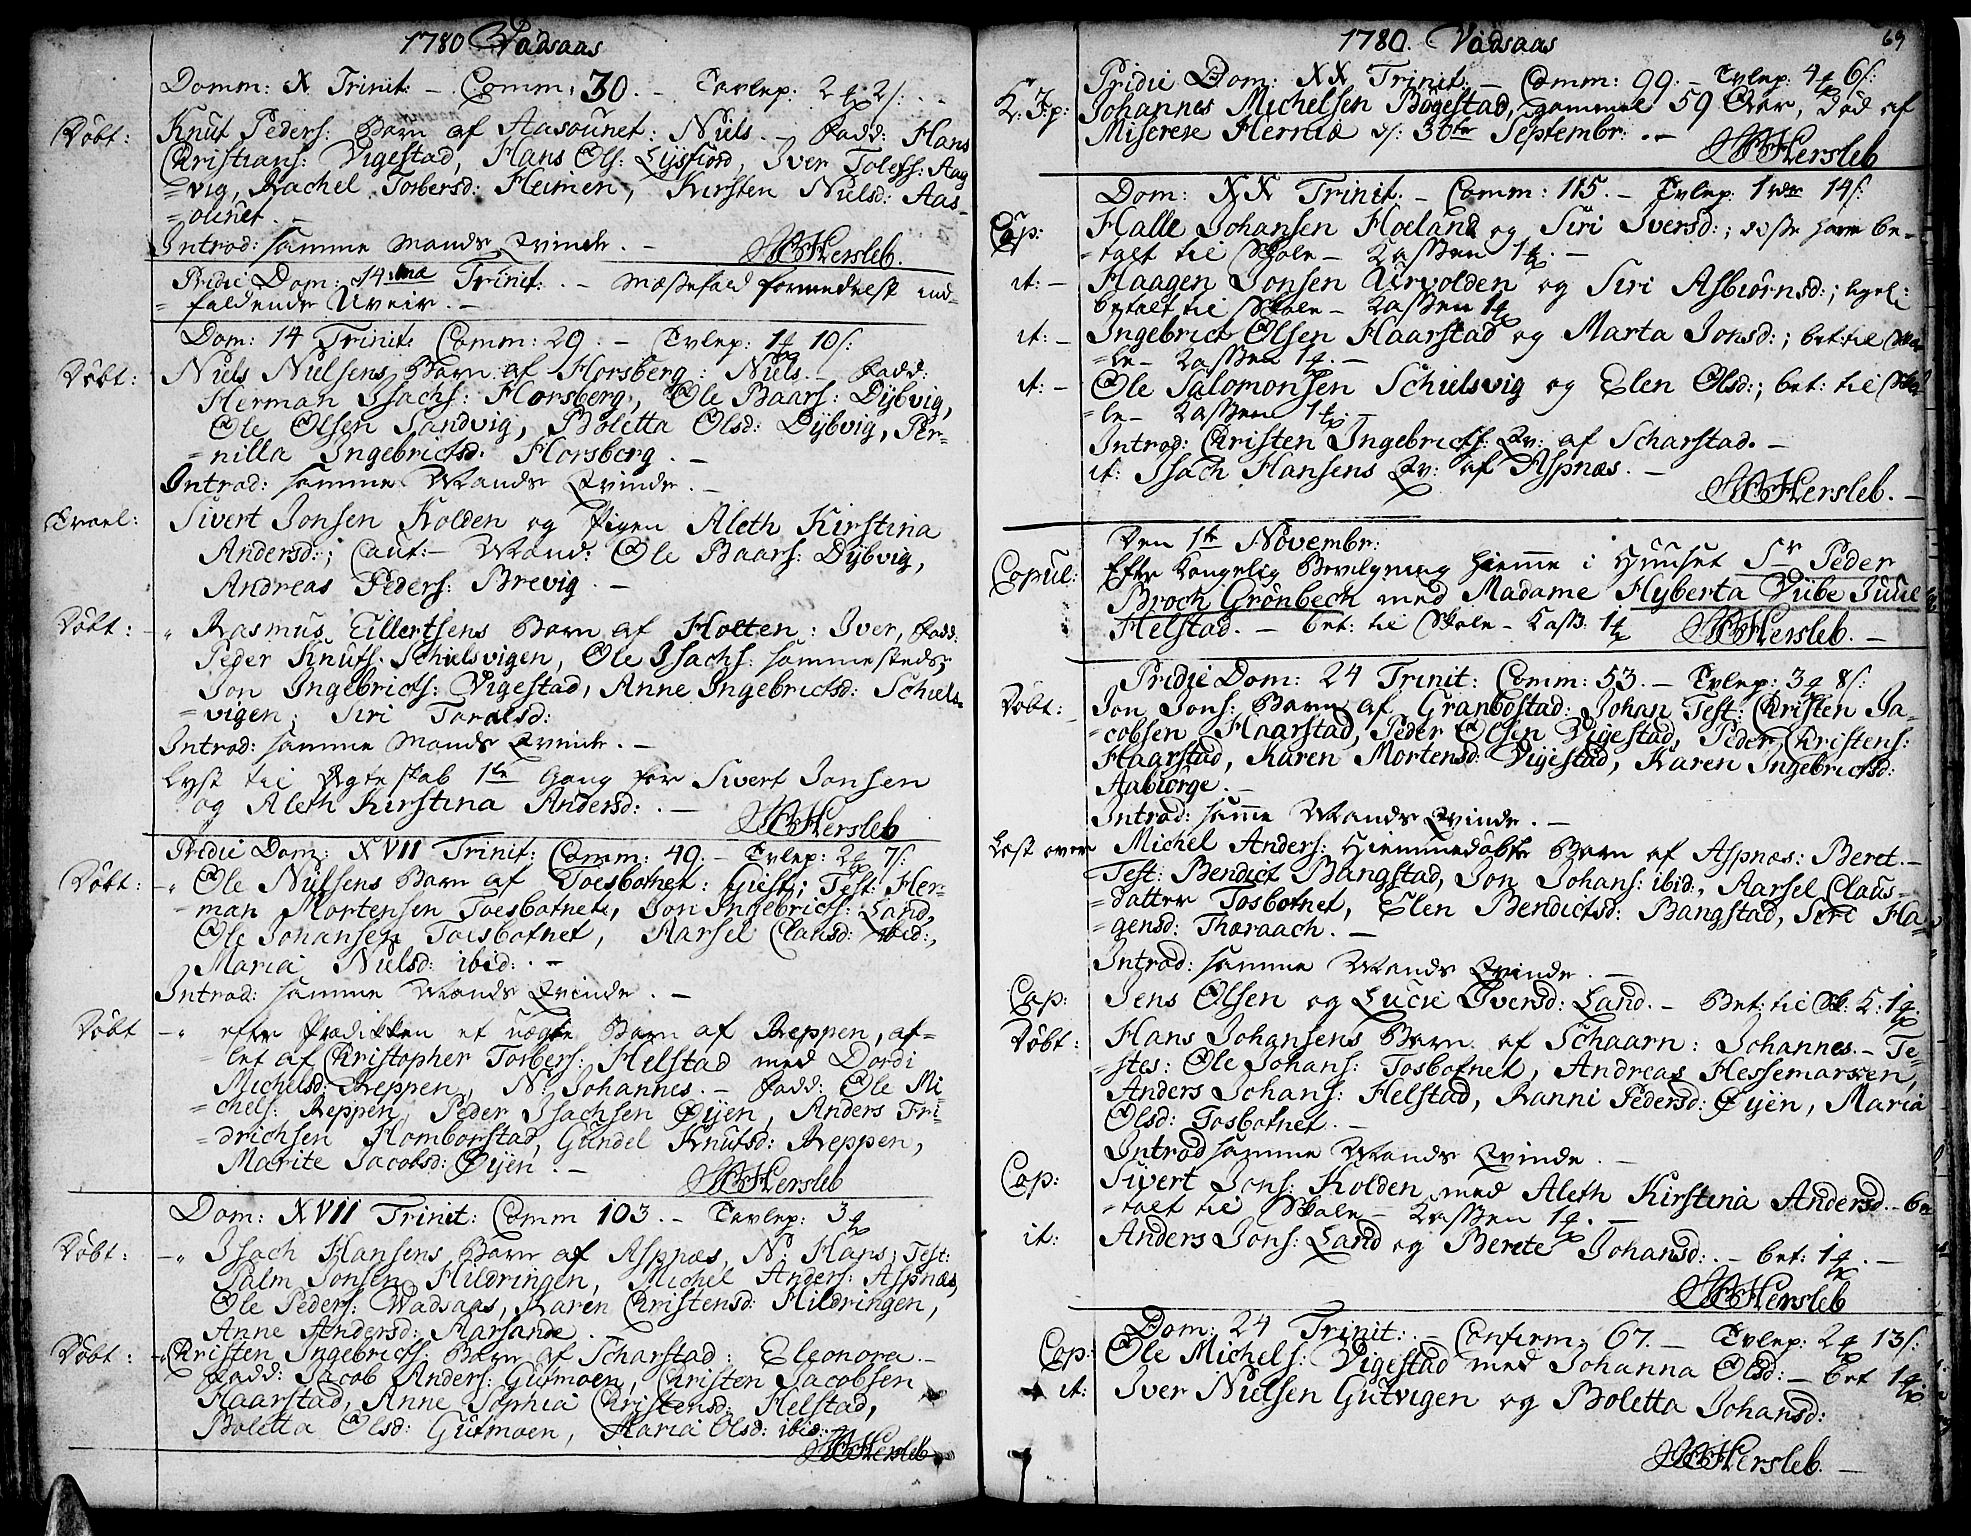 1780 Vadsaas
Domm: X Trinit: - Comm: 30. - Tavlep: 2 2s:
Døbt:
Knut Peders: Barn af Aasounet: Niels. - Fadd: Hans
Christians: Vigestad, Hans Ols: Lysfiord, Iver Tolefs: Aag
=vig, Rachel Torbersd: Heimen, Kirsten Nielsd: Aas-
=ounet. -
Introd: samme Mands Qvinde. -
Hersleb.
Pridie Dom: 14 Trinit: - Messefald formedelst ind-
=faldende Uveir. -
Dom: 14 Trinit: Comm: 29. - Tvlep: 1 10s:
Døbt:
Niels Nielsens Barn af Horsberg: Niels. - Fadd:
Herman Isachs: Horsberg, Ole Baars: Dybvig,
Ole Olsen Sandvig, Boletta Olsd: Dybvig, Per-
=nilla Ingebrictsd: Horsberg. -
Introd: samme Mands Qvinde. -
Trovl:
Sivert Jonsen Kolden og Pigen Aleth Kirstina
Andersd:; Caut: - Mænd: Ole Baars: Dybvig,
Andreas Peders: Brevig. -
Døbt: -
Rasmus Eillertsens Barn af Holten: Iver, Fadd:
Peder Knuts: Schielsvigen, Ole Isachs: sammesteds,
Jon Ingebricts: Vigestad, Anne Ingebrictsd: Schiels-
=vigen, Siri Taralsd:
Introd: samme Mands Qvinde. -
Lyst til Ægteskab 1te Gang for Sivert Jonsen
og Aleth Kirstina Andersd: -
Hersleb
Pridie Dom: XVII Trinit: Comm: 49. - Tvlep: 2 7s:
Døbt: -
Ole Nielsens Barn af Toesbotnet: Giest; Test: Her-
=man Mortensen Toesbotnet, Jon Ingebricts: Land,
Ole Johansen Toesbotnet, Aarsel Clausd: ibid:,
Maria Nielsd: ibid: -
Introd: samme Mands Qvinde. -
Døbt -
efter Prædikken et uægte Barn af Reppen, af-
=let af Christopher Torbers: Helstad med Dordi
Michelsd: Reppen, N: Johannes. - Fadd: Ole Mi-
=chels: Reppen, Peder Isachsen Øyen, Anders Fri-
=drichsen Homborstad, Gundel Knutsd: Reppen,
Marite Jacobsd: Øyen. -
Hersleb
Dom: XVII Trinit: Comm 103. - Tavlep: 3
Døbt: -
Isach Hansens Barn af Aspnæs, N: Hans; Test:
Palm Jonsen Hildringen, Michel Anders: Aspnæs,
Ole Peders: Wadsaas, Karen Christensd: Hildringen,
Anne Andersd: Aarsande.
Døbt: -
Christen Ingebricts: Barn af Scharstad: Eleonora. -
Fadd: Jacob Anders: Gutmoen, Christen Jacobsen
Haarstad, Anne Sophia Christensd: Helstad,
Boletta Olsd: Gutmoen, Maria Olsd: ibid:
Hersleb
1780. Vadsaas
69
Pridie Dom: XX Trinit: - Comm: 99. - Tvlep: 4 6s:
Johannes Michelsen Bøgestad, gammel 59 Aar, død af
Miserere Herniæ d: 30te Septembr: -
Hersleb
Dom: XX Trinit: - Comm: 115. - Tvlep: 1 14s:
Cop:
Halle Johansen Hoeland og Siri Iversd:; disse have be-
=talt til Skole - Kassen 1 -
it: -
Haagen Jonsen Urvolden og Siri Asbiørnsd:; ligel:
betalt til Skole - Kassen 1
it: -
Ingebrict Olsen Haarstad og Marta Jonsd:; bet: til Sko-
=le - Kassen 1 -
it: -
Ole Salomonsen Schielsvig og Elen Olsd:; bet: til Sko
=le - Kassen 1 -
Introd: Christen Ingebricts: Qv: af Scharstad. -
it: Isach Hansens Qv: af Aspnæs. -
Hersleb. -
Den 1te Novembr:
Copul:
Efter Kongelig Bevilgning hiemme i Huuset Sr Peder
Broch Grønbech med Madame Hyberta Vibe Juul
Helstad. - bet: til Skole - Kass: 1
Hersleb. -
Pridie Dom: 24 Trinit: Comm: 53. - Tvlep: 3 8s:
Døbt: -
Jon Jons: Barn af Granbostad: Johan Test: Christen Ja-
=cobsen Haarstad, Peder Olsen Vigestad, Peder Christens:
Haarstad, Karen Mortensd: Vigestad, Karen Ingebrictsd:
Aabiørge. -
Introd: samme Mands Qvinde. -
Læst over
Michel Anders: Hiemmedøbte Barn af Aspnæs: Beret. -
Test: Bendict Bangstad, Jon Johans: ibid:, Aarsel Claus-
=datter Tosbotnet, Elen Bendictsd: Bangstad, Siri Ha-
=gensd: Theraach. -
Introd: samme Mands Qvinde. -
Cop:
Jens Olsen og Lucie Iversd: Land. - Bet: til Sk: K: 1
Døbt:
Hans Johansens Barn af Schaarn: Johannes. - Te-
=stes: Ole Johans: Tosbotnet, Andreas Hessemarken,
Anders Johans: Helstad, Ranni Pedersd: Øyen, Maria
Olsd: Tosbotnet. -
Introd samme Mands Qvinde. -
Cop:
Sivert Jons: Kolden med Aleth Kirstina Andersd. - be
=talt til Skole - Kassen 1 -
it:
Anders Jons: Land og Berete Johansd: - bet: 1 -
Hersleb
Dom: 24 Trinit: - Confirm: 67. - Tvlep: 2 13s:
Cop:
Ole Michels: Vigestad med Johanna Olsd: - bet 1
it:
Iver Nielsen Gutvigen og Boletta Johansd:
Hersleb. -